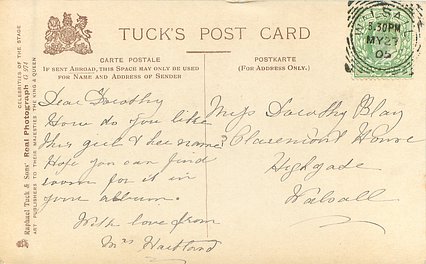 TUCK'S POST CARD
CARTE POSTALE
IF SENT ABROAD, THIS SPACE MAY ONLY BE USED
FOR NAME AND ADDRESS OF SENDER
POSTKARTE
(FOR ADDRESS ONLY.)
WALSALL
30PM
MY 27
05
Dear Dorothy
How do you like
this girl & her name
Hope you can find
room for it in
your album.
With love from
Mrs Hartland
Miss Dorothy Blay
Claremont House
Highgate
Walsall
CELEBRITIES OF THE STAGE
Raphael Tuck & Sons' Real Photograph
ART PUBLISHERS TO THEIR MAJESTIES THE KING & QUEEN